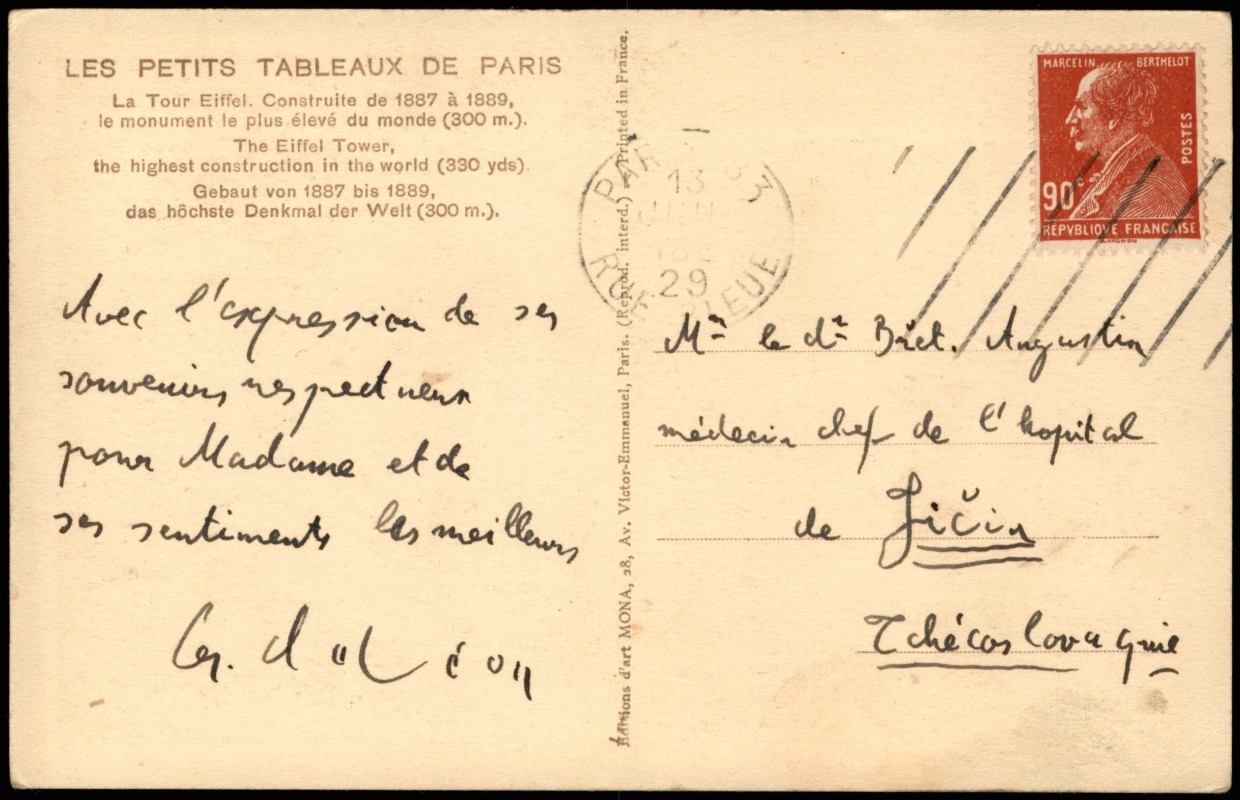 LES PETITS TABLEAUX DE PARIS
La Tour Eiffel. Construite de 1887 à 1889,
le monument le plus élevé du monde (300 m.).
The Eiffel Tower,
the highest construction in the world (330 yds).
Gebaut von 1887 bis 1889,
das höchste Denkmal der Welt (300 m.).
Avec l'expression de ses
souvenirs respectueux
pour Madame et de
ses sentiments les meilleurs
Editions d'art MONA, 28, Av. Victor-Emmanuel, Paris. (Reprod. interd.) Printed in France.
PARIS
13
29
RUE BLEUE
MARCELIN BERTHELOT
POSTES
90c
REPVBLIQVE FRANÇAISE
Mr le dr Augustin
médecin chef de l'hopital
de Jičin
Tchécoslovaquie